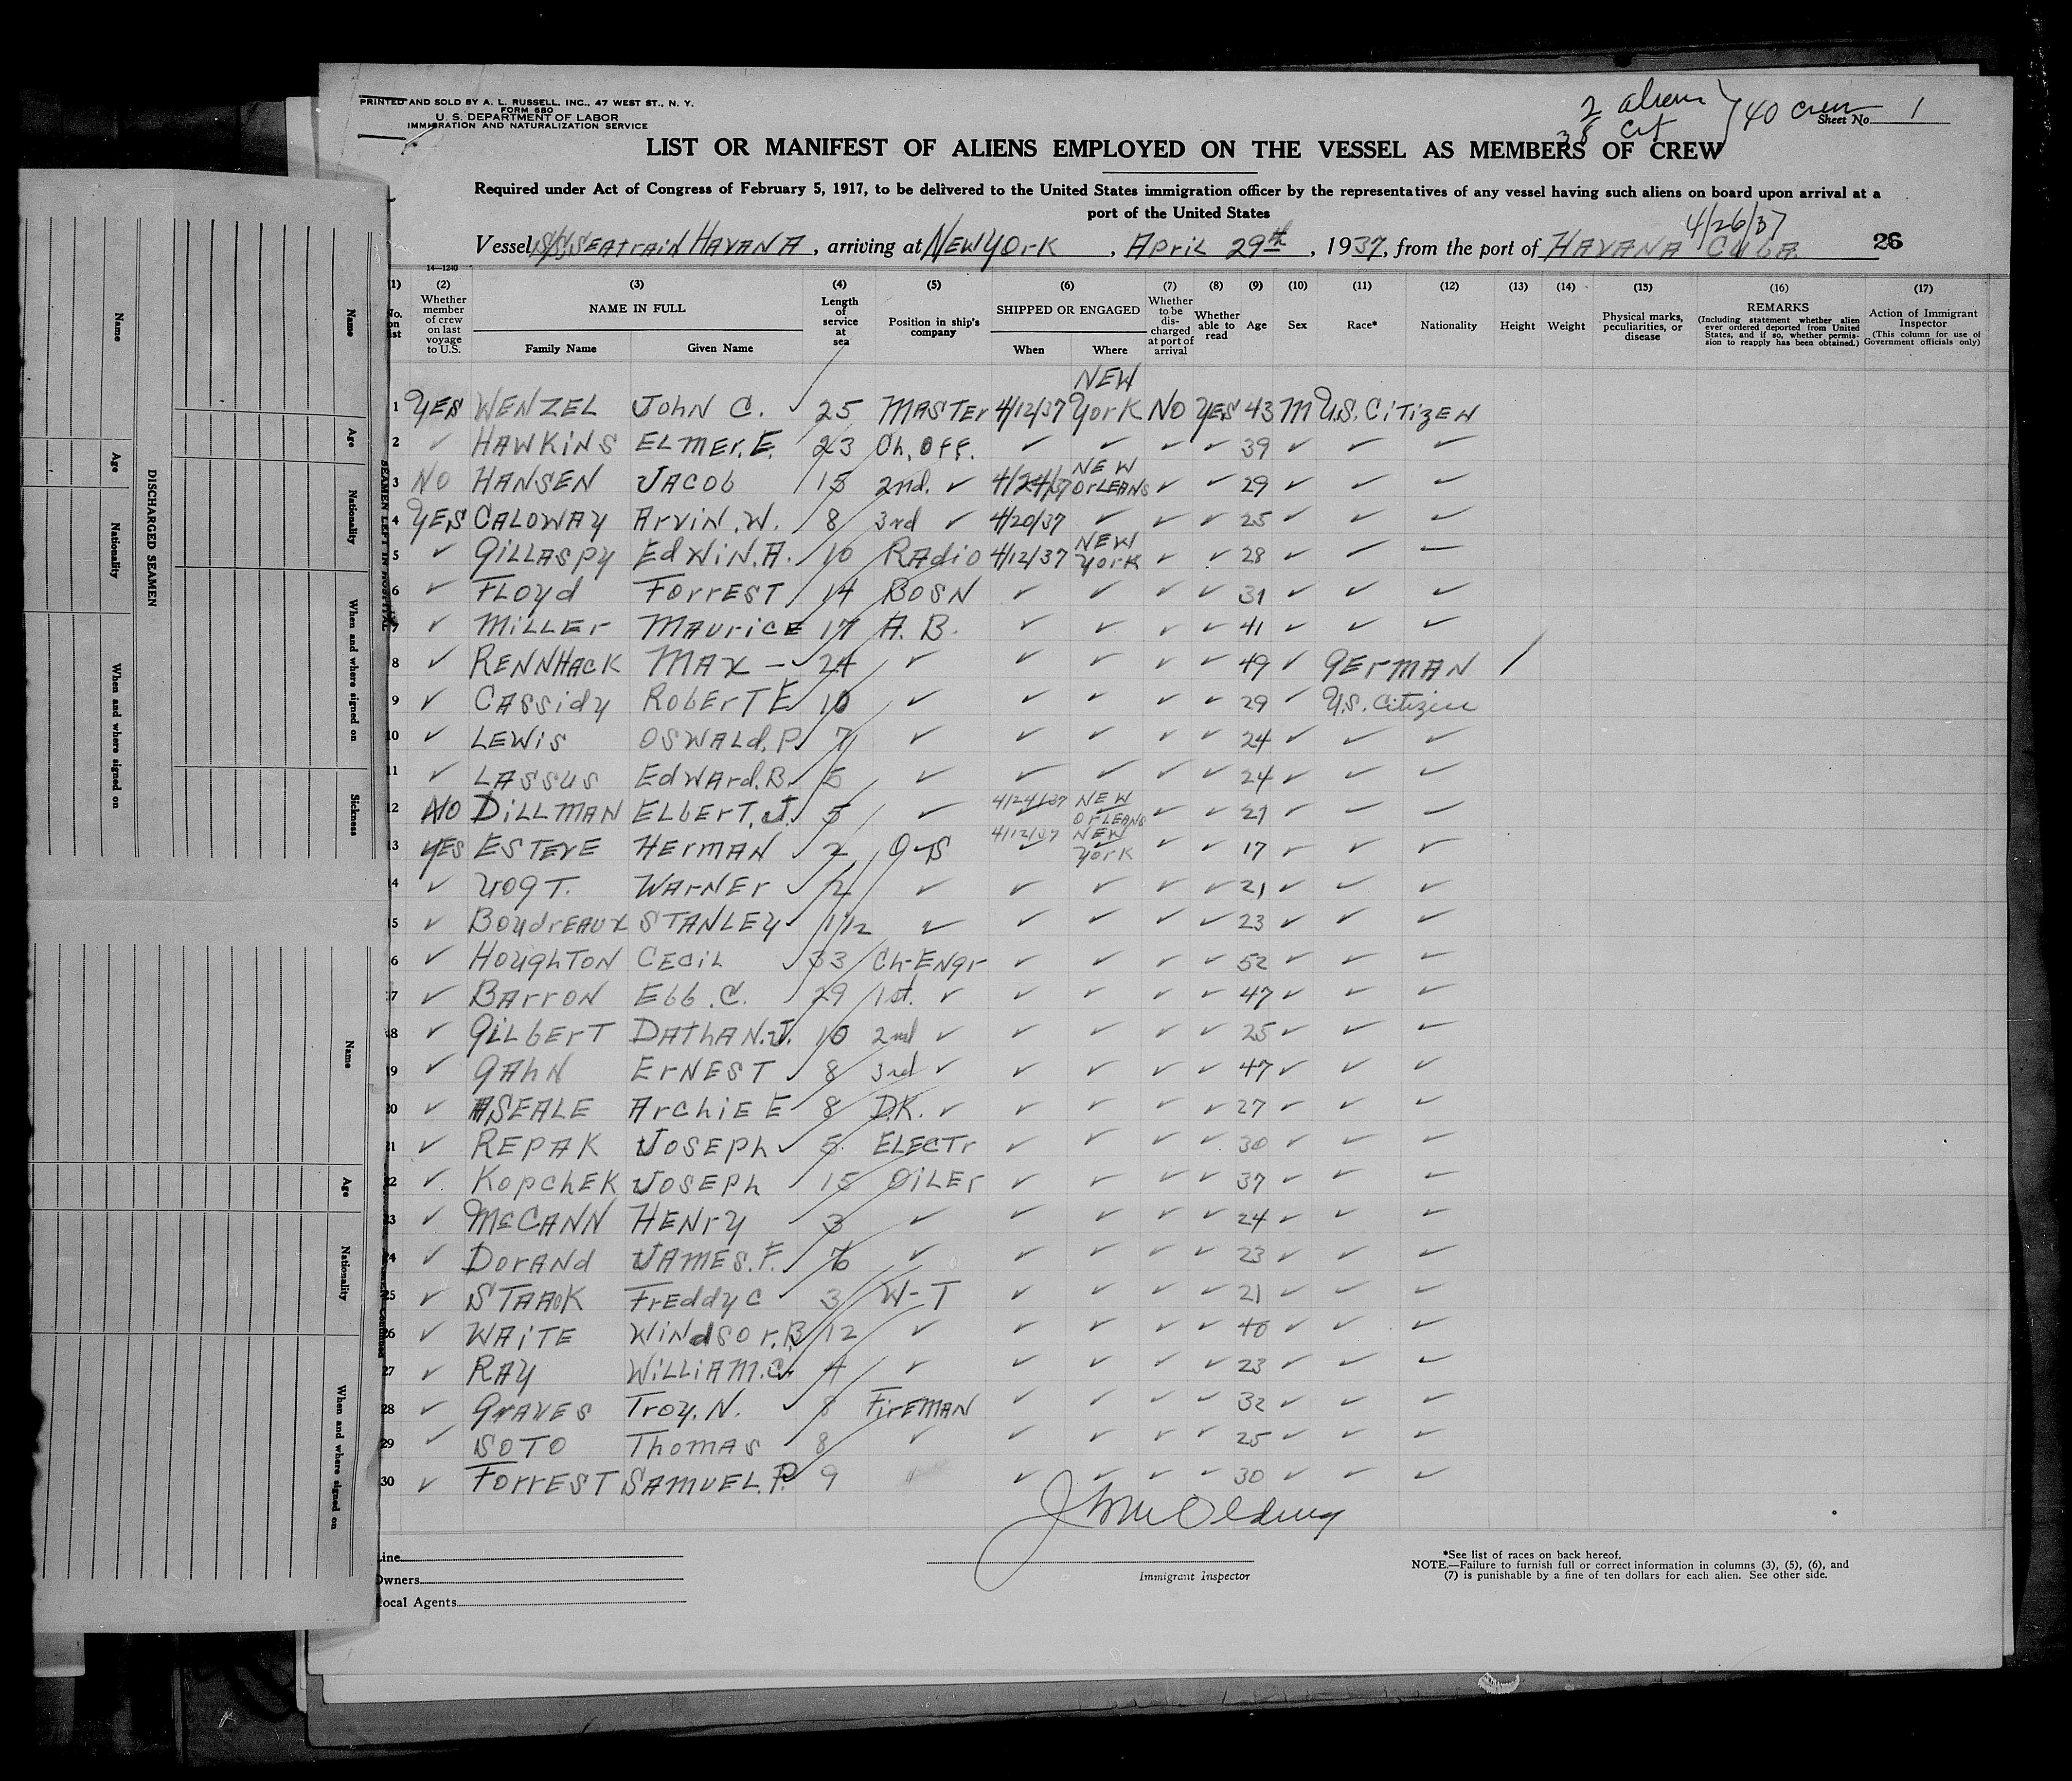 PRINTED AND SOLD BY A. L. RUSSELL, INC., 47 WEST ST., N. Y.
FORM 680
U. S. DEPARTMENT OF LABOR
IMMIGRATION AND NATURALIZATION SERVICE
2 aliens
38 Cit } 40 crew
Sheet No. 1
LIST OR MANIFEST OF ALIENS EMPLOYED ON THE VESSEL AS MEMBERS OF CREW
Required under Act of Congress of February 5, 1917, to be delivered to the United States immigration officer by the representatives of any vessel having such aliens on board upon arrival at a
port of the United States
4/26/37
Vessel S/S SEATRAIN HAVANA, arriving at NEW YORK, April 29th, 1937, from the port of HAVANA CUBA 26
14—1240
(1) (2) (3) (4) (5) (6) (7) (8) (9) (10) (11) (12) (13) (14) (15) (16) (17)
No. on list
Whether member of crew on last voyage to U.S.
NAME IN FULL
Family Name Given Name
Length of service at sea
Position in ship's company
SHIPPED OR ENGAGED
When Where
Whether to be discharged at port of arrival
Whether able to read
Age
Sex
Race*
Nationality
Height
Weight
Physical marks, peculiarities, or disease
REMARKS
(Including statement whether alien ever ordered deported from United States, and if so, whether permission to reapply has been obtained.)
Action of Immigrant Inspector
(This column for use of Government officials only)
1 YES WENZEL JOHN C. ✓ 25 MASTER 4/12/37 NEW YORK NO YES 43 M U.S. CITIZEN
2 ✓ HAWKINS ELMER. E. 23 Ch. OFF. ✓ ✓ ✓ ✓ 39 ✓ ✓ ✓
3 NO HANSEN JACOB 15 2nd. ✓ 4/24/37 NEW ORLEANS ✓ ✓ 29 ✓ ✓ ✓
4 YES CALOWAY ARVIN. W. 8 3rd ✓ 4/20/37 ✓ ✓ ✓ 25 ✓ ✓ ✓
5 ✓ GILLASPY EDWIN. A. 10 RADIO 4/12/37 NEW YORK ✓ ✓ 28 ✓ ✓ ✓
6 ✓ FLOYD FORREST 14 BOSN ✓ ✓ ✓ ✓ 31 ✓ ✓ ✓
7 ✓ MILLER MAURICE 17 A. B. ✓ ✓ ✓ ✓ 41 ✓ ✓ ✓
8 ✓ RENNHACK MAX — ✓ 24 ✓ ✓ ✓ ✓ ✓ 49 ✓ GERMAN /
9 ✓ CASSIDY ROBERT E 10 ✓ ✓ ✓ ✓ ✓ 29 ✓ U.S. Citizen
10 ✓ LEWIS OSWALD. P. 7 ✓ ✓ ✓ ✓ ✓ 24 ✓ ✓ ✓
11 ✓ LASSUS EDWARD. B. ✓ ✓ ✓ ✓ ✓ 24 ✓ ✓ ✓
12 NO DILLMAN ELBERT. J. 5 ✓ 4/24/37 NEW ORLEANS ✓ ✓ 21 ✓ ✓ ✓
13 YES ESTEVE HERMAN ✓ 2 O-S 4/12/37 NEW YORK ✓ ✓ 17 ✓ ✓ ✓
14 ✓ VOGT. WARNER ✓ 2 ✓ ✓ ✓ ✓ ✓ 21 ✓ ✓ ✓
15 ✓ BOUDREAUX STANLEY ✓ 1 1/2 ✓ ✓ ✓ ✓ ✓ 23 ✓ ✓ ✓
16 ✓ HOUGHTON CECIL ✓ 33 Ch-ENGR ✓ ✓ ✓ ✓ 52 ✓ ✓ ✓
17 ✓ BARRON EBB. C. 29 1st. ✓ ✓ ✓ ✓ ✓ 47 ✓ ✓ ✓
18 ✓ GILBERT DATHAN. J. 10 2nd ✓ ✓ ✓ ✓ ✓ 25 ✓ ✓ ✓
19 ✓ GAHN ERNEST ✓ 8 3rd ✓ ✓ ✓ ✓ ✓ 47 ✓ ✓ ✓
20 ✓ SEALE ARCHIE E 8 D.K. ✓ ✓ ✓ ✓ ✓ 27 ✓ ✓ ✓
21 ✓ REPAK JOSEPH ✓ 5 ELECTR ✓ ✓ ✓ ✓ 30 ✓ ✓ ✓
22 ✓ KOPCHEK JOSEPH 15 OILER ✓ ✓ ✓ ✓ 37 ✓ ✓ ✓
23 ✓ McCANN HENRY 3 ✓ ✓ ✓ ✓ ✓ 24 ✓ ✓ ✓
24 ✓ DORAND JAMES. F. ✓ ✓ ✓ ✓ ✓ ✓ 23 ✓ ✓ ✓
25 ✓ FREDDY C 3 W-T ✓ ✓ ✓ ✓ 21 ✓ ✓ ✓
26 ✓ WAITE WINDSOR. B. 12 ✓ ✓ ✓ ✓ ✓ 40 ✓ ✓ ✓
27 ✓ RAY WILLIAM. C. 4 ✓ ✓ ✓ ✓ ✓ 23 ✓ ✓ ✓
28 ✓ GRAVES TROY. N. ✓ 8 FIREMAN ✓ ✓ ✓ ✓ 32 ✓ ✓ ✓
29 ✓ SOTO THOMAS ✓ 8 ✓ ✓ ✓ ✓ ✓ 25 ✓ ✓ ✓
30 ✓ FORREST SAMUEL. P. 9 ✓ ✓ ✓ ✓ 30 ✓ ✓ ✓
Line
Owners
Local Agents
Immigrant Inspector
*See list of races on back hereof.
NOTE.—Failure to furnish full or correct information in columns (3), (5), (6), and
(7) is punishable by a fine of ten dollars for each alien. See other side.
DISCHARGED SEAMEN
Name
Age
Nationality
When and where signed on
SEAMEN LEFT IN HOSPITAL
Name
Age
Nationality
When and where signed on
Sickness
Name
Age
Nationality
When and where signed on